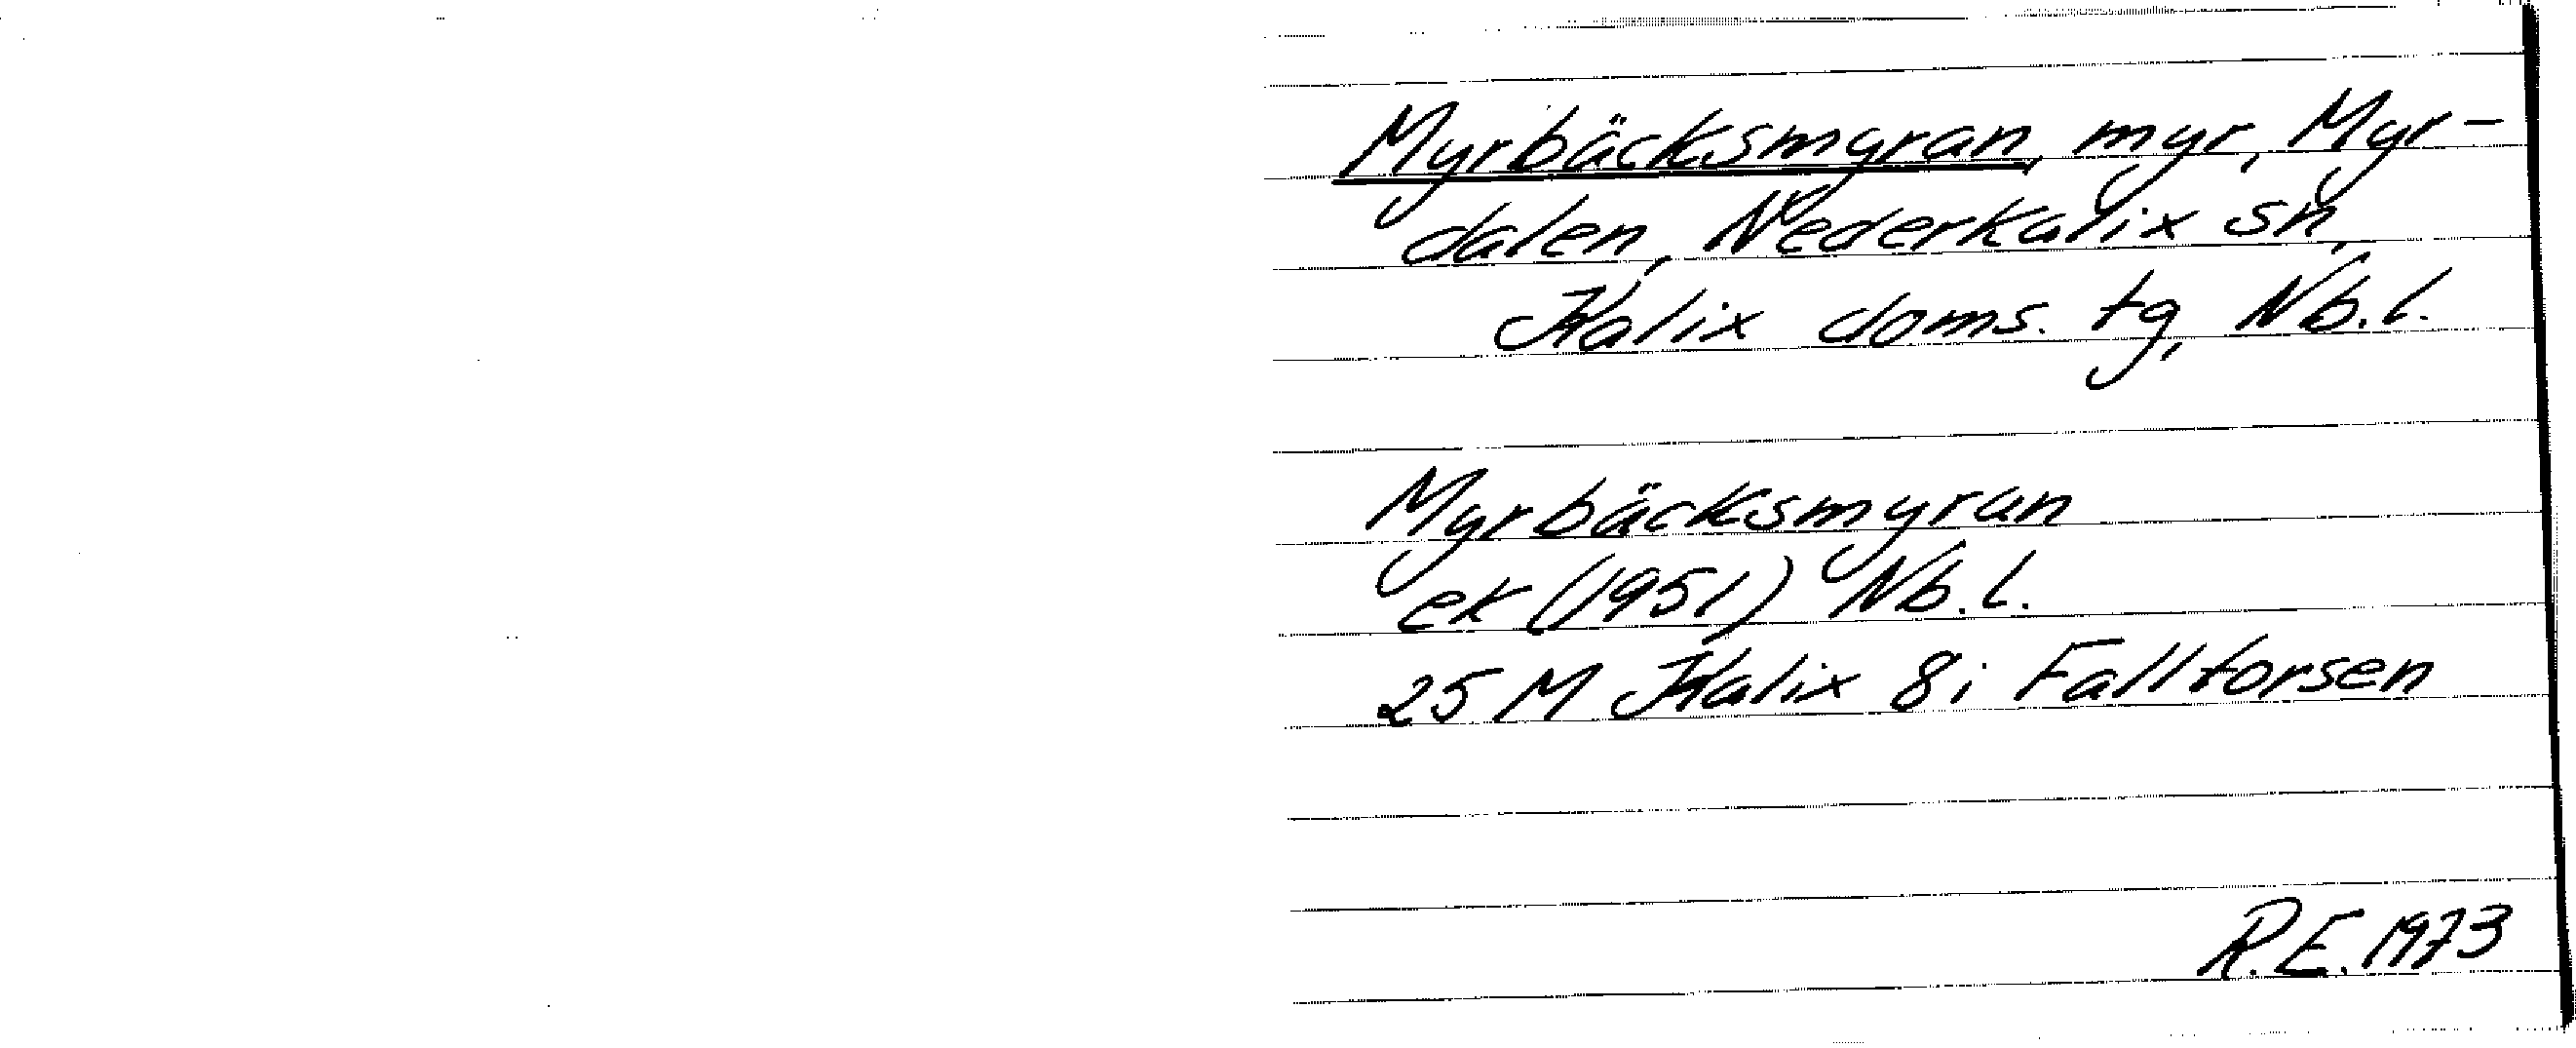 Myrbäcksmyran, myr, Myr-
dalen, Nederkalix sn,
Kalix doms. tg, Nb.l.
Myrbäcksmyran
ek (1951) Nb.l.
25 M Kalix 8i Falltorsen
R.E. 1973